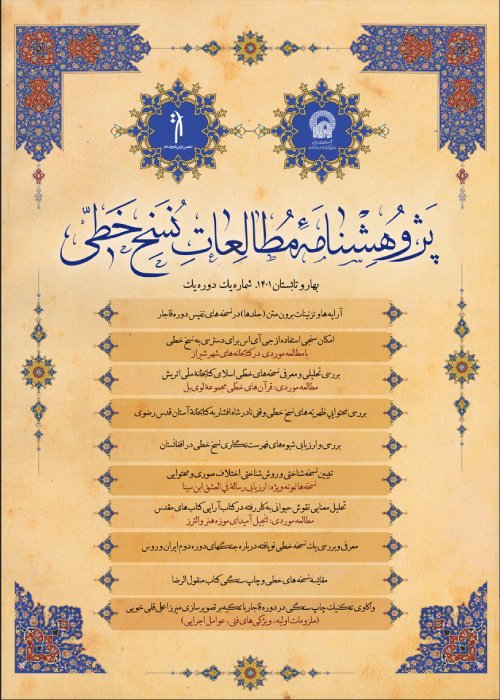 پژوهشنامهٔ مطالعاتِ نُسَخِ خَطّی
بهار و تابستان ۱۴۰۱. شماره یک دوره یک
آرایه‌ها و تزئینات برون متن (جلدها) در نسخه‌های نفیس دوره قاجار
امکان سنجی استفاده از جی آی اس برای دسترسی به نسخ خطی
با مطالعه موردی در کتابخانه‌های شهر شیراز
بررسی تحلیلی و معرفی نسخه‌های خطی اسلامی کتابخانه ملی اتریش
مطالعه موردی: قرآن‌های خطی مجموعه لوی بل
بررسی محتوایی ظهرنه‌های نسخ خطی وقفی نادرشاه افشار به کتابخانۀ آستان قدس رضوی
بررسی و ارزیابی شیوه‌های فهرست نگاری نسخ خطی در افغانستان
تبیین نسخه شناختی و روش شناختی اختلاف صوری و محتوایی
نسخه‌ها نمونه ویژه: ارزیابی رسالة في العشق ابن سینا
تحلیل معنایی نقوش حیوانی به کار رفته در کتاب آرایی کتاب‌های مقدس
مطالعه موردی: انجیل آمیدای موزه هنر والترز
معرفی و بررسی یک نسخه خطی نویافته درباره جنگهای دوره دوم ایران و روس
مقایسۀ نسخه‌های خطی و چاپ سنگی کتاب منقول الرضا
واکاوی تکنیک چاپ سنگی در دوره قاجار با تکیه بر تصویرسازی میرزا علی قلی خویی
(ملزومات اولیه، ویژگی‌های فنی، عوامل اجرایی)